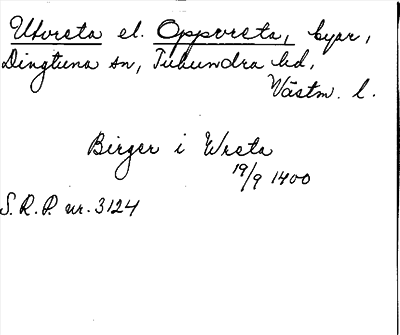 Utvreta el. Oppvreta, byar,
Dingtuna sn, Tuhundra hd,
Västm. l.
Birger i Wreta
19/9 1400
S.R.P. nr. 3124